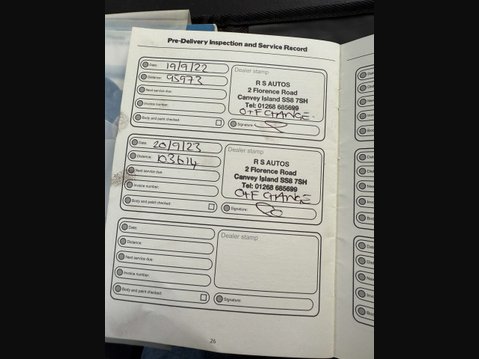 Pre-Delivery Inspection and Service Record
Date: 19/9/22
Distance: 95973
Next service due:
Invoice number:
Body and paint checked:
Dealer stamp
R S AUTOS
2 Florence Road
Canvey Island SS8 7SH
Tel: 01268 685699
O+F CHANGE
Signature:
Date: 20/9/23
Distance: 103614
Next service due
Invoice number:
Body and paint checked:
Dealer stamp
R S AUTOS
2 Florence Road
Canvey Island SS8 7SH
Tel: 01268 685699
O+F CHANGE
Signature:
Date:
Distance:
Next service due
Invoice number:
Body and paint checked:
Dealer stamp
Signature:
26